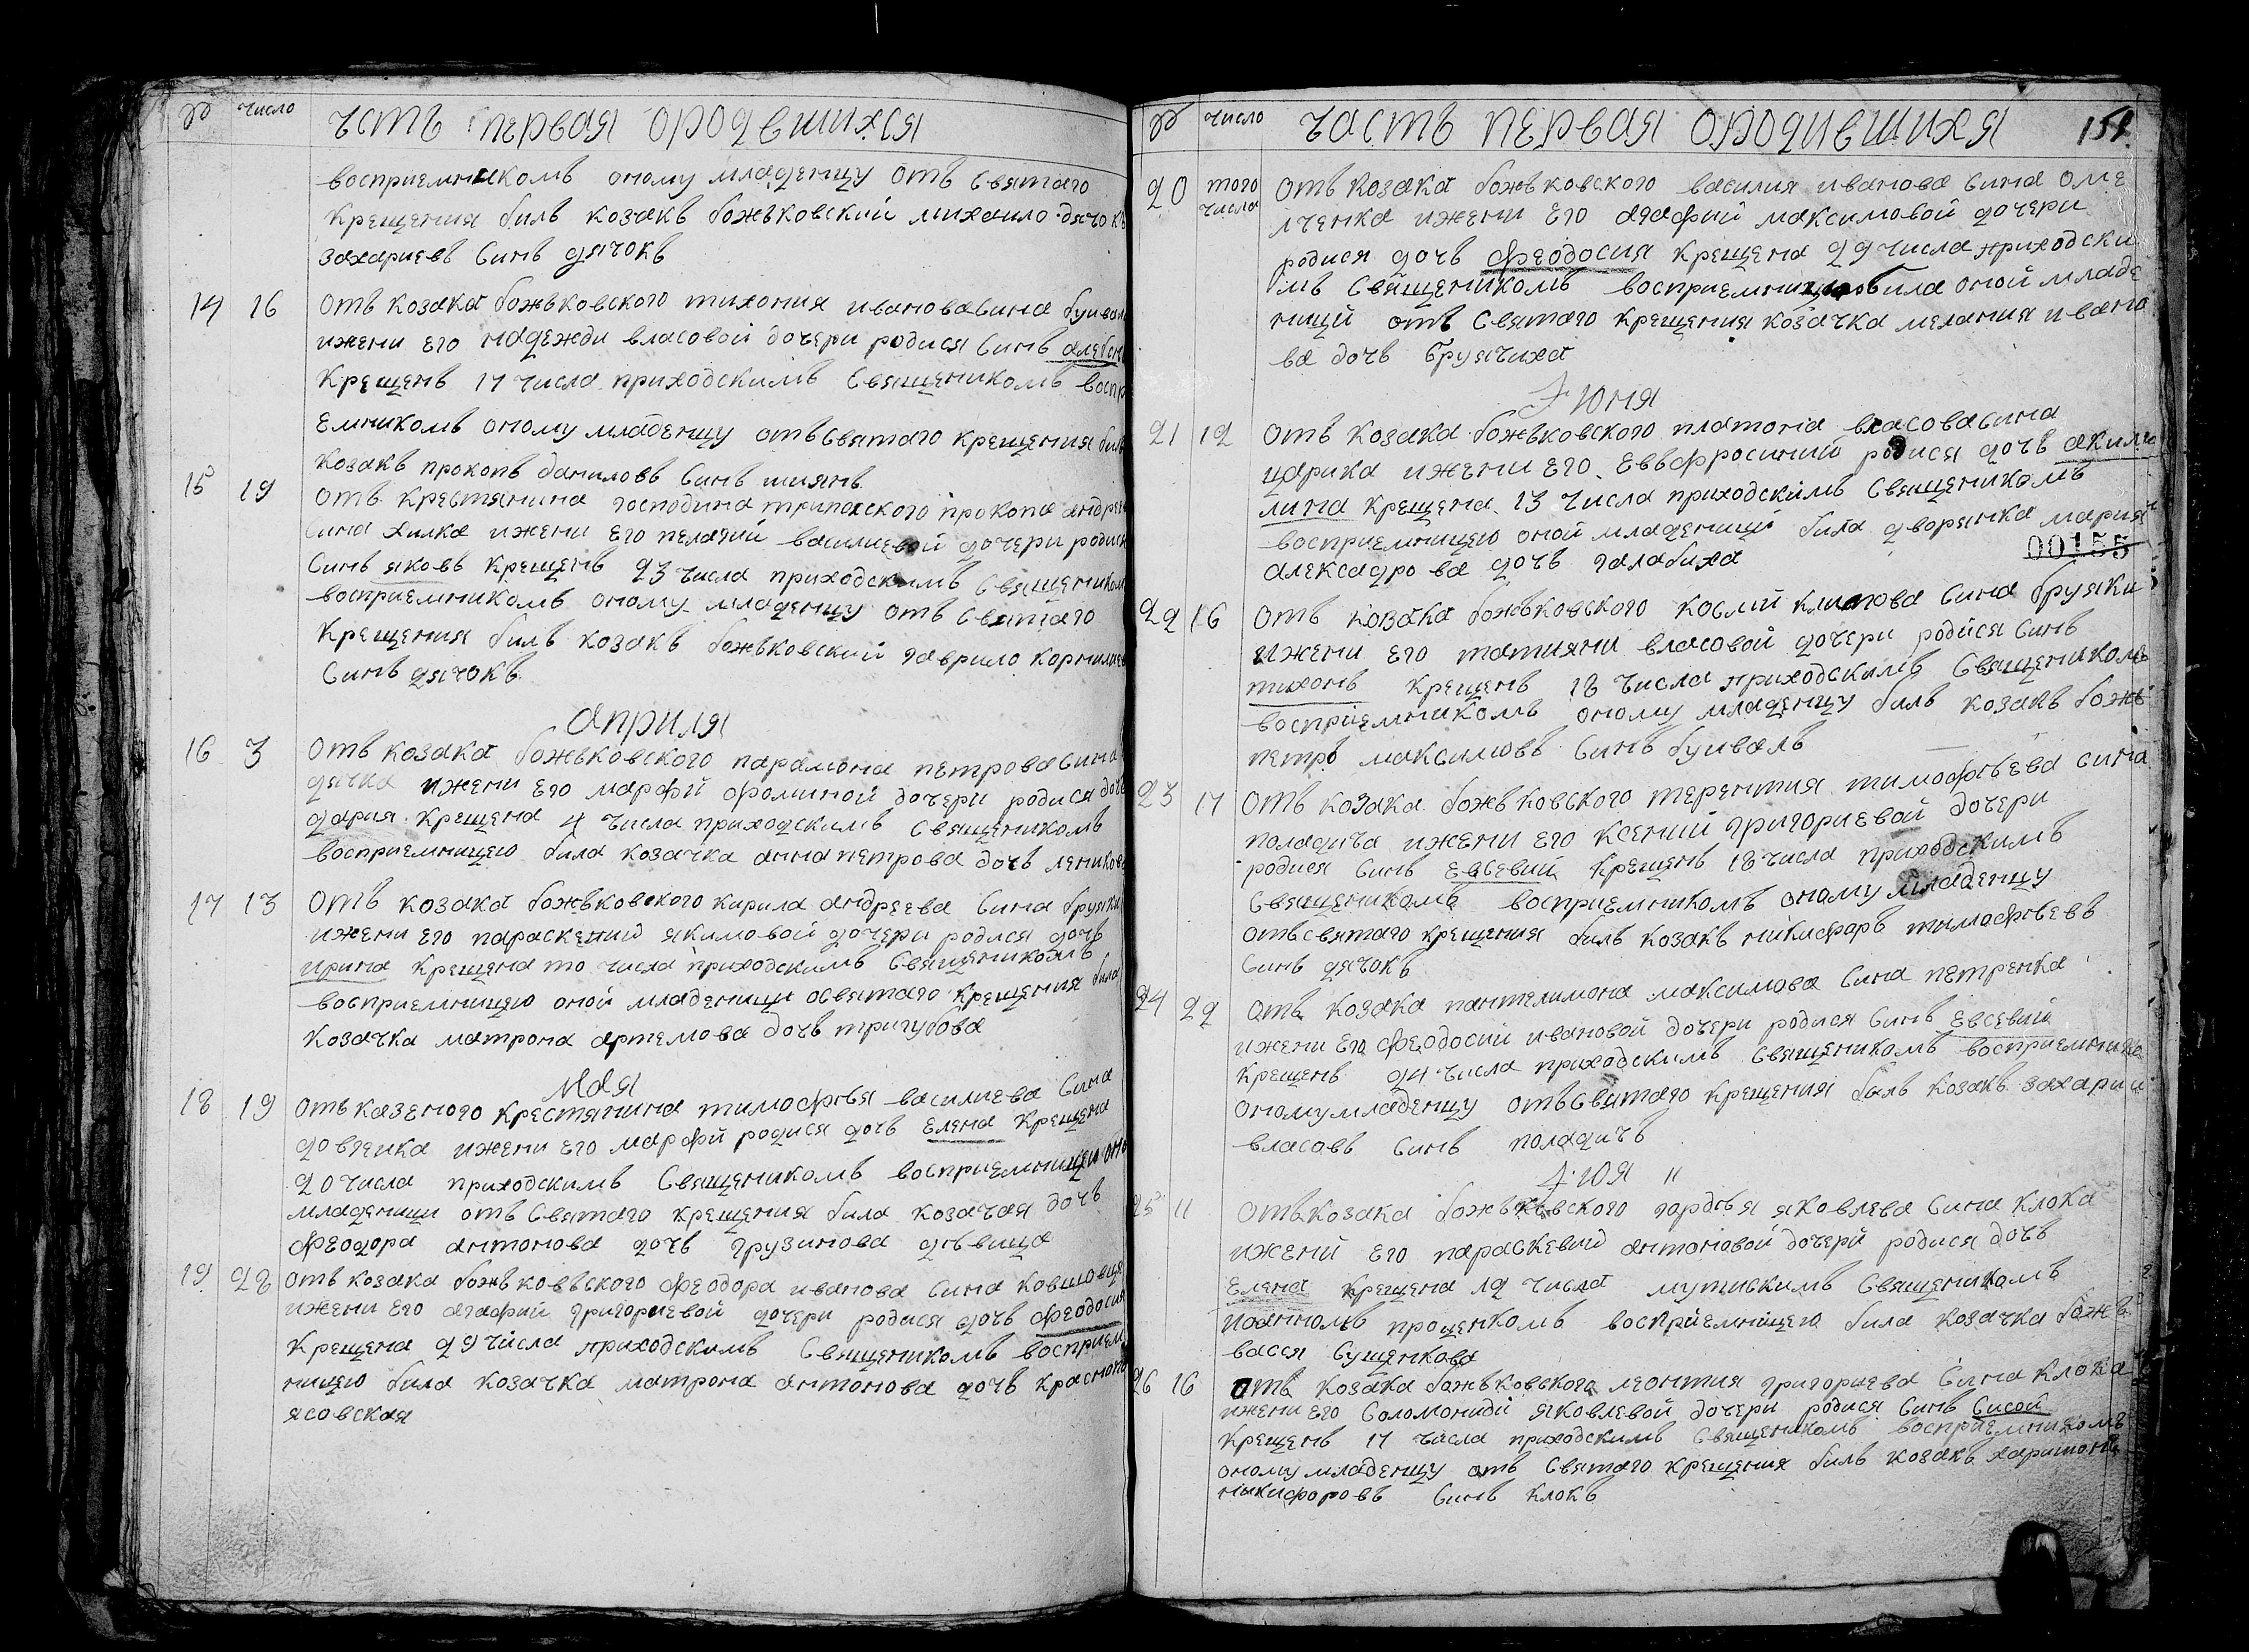 № число чстъ первая ородѣвшихся
восприемникомъ оному младенцу отъ святаго
крещения билъ козакъ божъковский михаило дячокъ
захариевъ синъ дячокъ
14 16 отъ козака божъковского тихония иванова сина буивал
ижени его надежди власовой дочери родися синъ
крещенъ 17 числа приходскимъ священикомъ воспр
емникомъ оному младенцу отъ святаго крещения билъ
козакъ прокопъ даниловъ синъ шиянъ
15 19 отъ крестянина господина трипояского прокопа андрее
сина хилка ижени его пелагий василиевой дочери родися
синъ яковъ крещенъ 23 числа приходскимъ священиком
восприемникомъ оному младенцу отъ святаго
крещения билъ козакъ божъковский гаврило корнилиев
синъ дячокъ
априля
16 3 отъ козака божъковского парамона петрова сина
дячка ижени его марфй фоминой дочери родися дочъ
дария крещена 4 числа приходскимъ священикомъ
восприемницею била козачка анна петрова дочъ
17 13 отъ козака божъковского кирила андреева сина бруяки
ижени его параскений якимовой дочери родися дочъ
ирина крещена то числа приходскимъ священикомъ
восприемницею оной младеници освятаго крещения била
козачка матрона артемова дочъ тригубова
мая
18 19 отъ казеного крестянина тимофѣя василиева сина
довгенка ижени его марфй родися дочъ елена крещена
20 числа приходскимъ священикомъ восприемницеи оно
младеници отъ святаго крещения била козачая дочъ
феодора антонова дочъ грузинова дѣвица
19 28 отъ козака божъковъского феодора иванова сина ковшовця
ижени его агафий григориевой дочери родися дочъ феодосия
крещена 29 числа приходскимъ священикомъ восприем
ницею била козачка матрона антонова дочъ краснопо
ясовская
№ число частъ первая ородившихся 151.
20 того числа отъ козака божъковского василия иванова сина оме
лченка ижени его агафий максимовой дочери
родися дочъ феодосия крещена 29 числа приходски
мъ священикомъ восприемницею била оной младе
ници отъ святаго крещения козачка мелания ивано
ва дочъ бруячиха
Июня
21 12 отъ козака божъковского платона власова сина
царика ижени его еввфросиний родися дочъ акили
лина крещена 13 числа приходскимъ священикомъ
восприемницею оной младеници била дворянка мария
алексадрова дочъ галабиха
00155
22 16 отъ козака божъковского космй климова сина бруяки
ижени его татияни власовой дочери родися синъ
тихонъ крещенъ 18 числа приходскимъ священикомъ
восприемникомъ оному младенцу билъ козакъ божъ
петръ максимовъ синъ буивалъ
23 17 отъ козака божъковского терентия тимофѣева сина
поладича ижени его ксений григориевой дочери
родися синъ евсевий крещенъ 18 числа приходскимъ
священикомъ восприемникомъ оному младенцу
отъ святаго крещения билъ козакъ никифаръ тимофѣевъ
синъ дячокъ
24 22 отъ козака пантелимона максимова сина петренка
ижени его феодосий ивановой дочери родися синъ евсевий
крещенъ 24 числа приходскимъ священикомъ восприемнико
оному младенцу отъ святаго крещения билъ козакъ захарии
власовъ синъ поладичъ
Июя
25 11 отъ козака божъковского гордѣя яковлева сина клока
ижений его параскевий антоновой дочерй родися дочъ
елена крещена 12 числа мутискимъ священикомъ
иоанномъ проценкомъ восприемницею била козачка божъ
васся сущенкова
26 16 отъ козака божъковского леонтия григориева сина клока
ижени его соломониди яковлевой дочери родися синъ сисой
крещенъ 17 числа приходскимъ священикомъ восприемникомъ
оному младенцу отъ святаго крещения билъ козакъ харитонъ
никифоровъ синъ клокъ